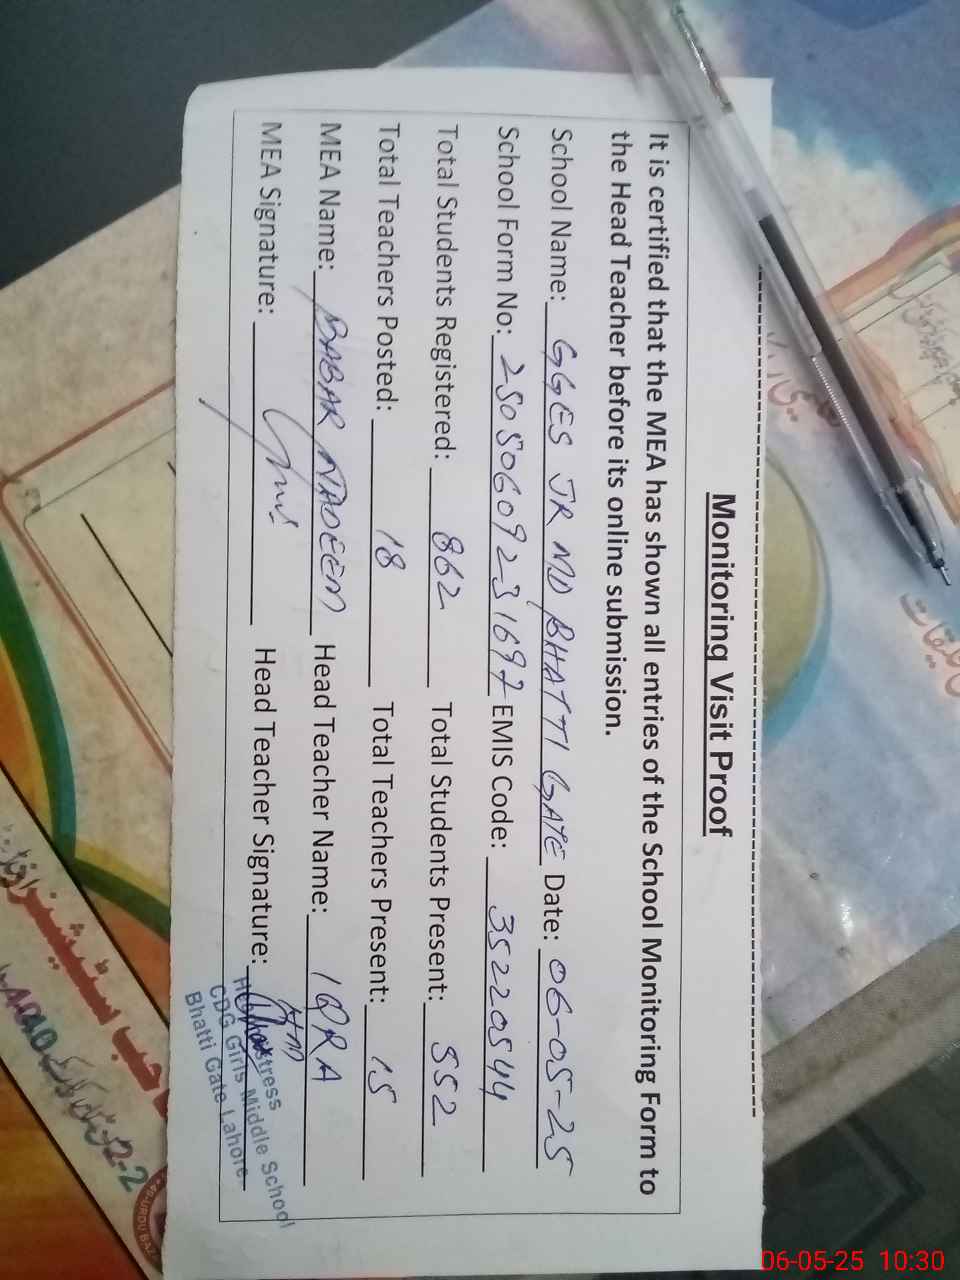 Monitoring Visit Proof
It is certified that the MEA has shown all entries of the School Monitoring Form to
the Head Teacher before its online submission.
School Name: GGES JR MD BHATTI GATE Date: 06-05-25
School Form No: 25050609231697 EMIS Code: 35220544
Total Students Registered: 862 Total Students Present: 552
Total Teachers Posted: 18 Total Teachers Present: 15
MEA Name: BABAR NADEEM Head Teacher Name: IQRA
HM
MEA Signature: Head Teacher Signature:
Headmistress
CDG Girls Middle School
Bhatti Gate Lahore
URDU BAZ
06-05-25 10:30